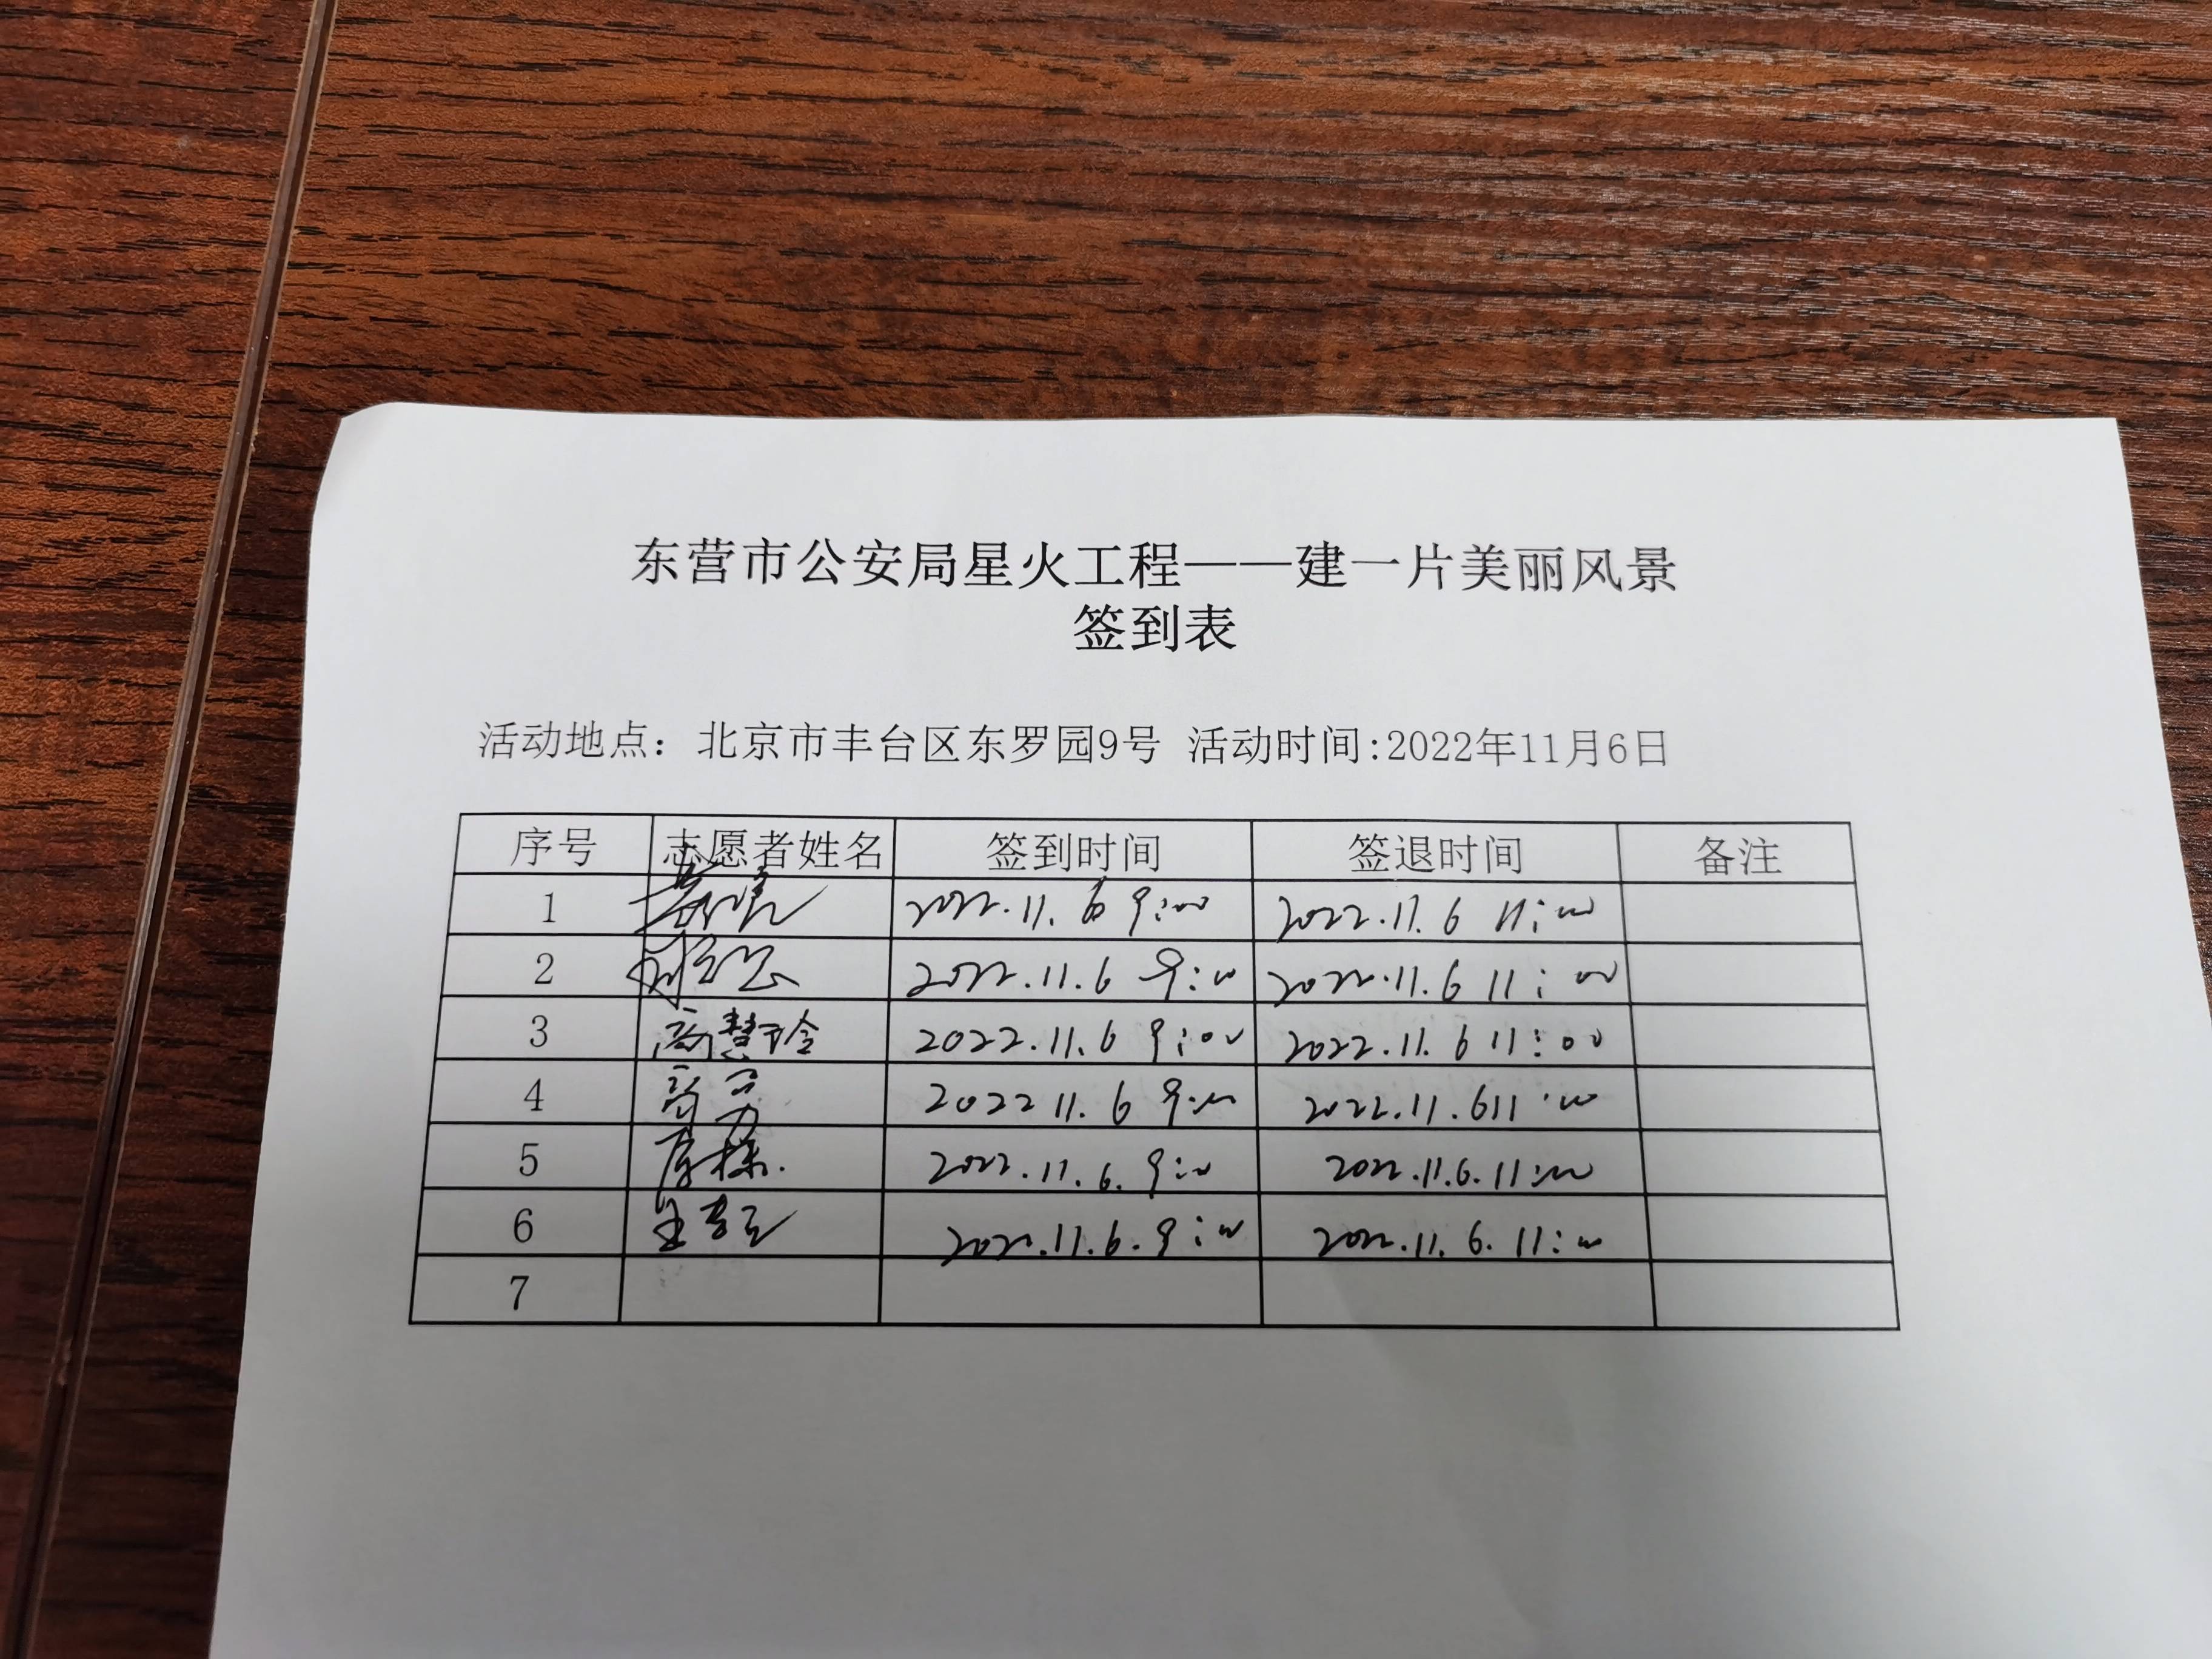 东营市公安局星火工程——建一片美丽风景
签到表
活动地点：北京市丰台区东罗园9号 活动时间:2022年11月6日
序号 志愿者姓名 签到时间 签退时间 备注
1 2022.11.6 9:00 2022.11.6 11:00
2 2022.11.6 9:00 2022.11.6 11:00
3 高慧玲 2022.11.6 9:00 2022.11.6 11:00
4 2022 11.6 9:00 2022.11.6 11:00
5 2022.11.6. 9:00 2022.11.6. 11:00
6 2022.11.6. 9:00 2022.11.6. 11:00
7